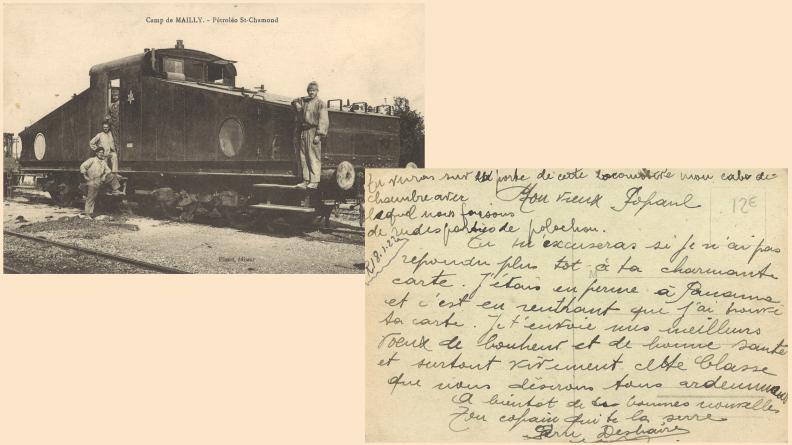 Camp de MAILLY. - Pétroléo St-Chamond
Tu verras sur la porte de cette locomotive mon cabo de
chambre avec
lequel nous faisons
de rudes parties de polochon.
Mon vieux Popaul
12€
Tu m'excuseras si je n'ai pas
repondu plus tot à ta charmante
carte. J'étais en perme à Paname
et c'est en rentrant que j'ai trouvé
ta carte. Je t'envoie mes meilleurs
voeux de bonheur et de bonne santé
et surtout vivement cette Classe
que nous désirons tous ardemment
A bientot de tes bonnes nouvelles
Ton copain qui te la serre